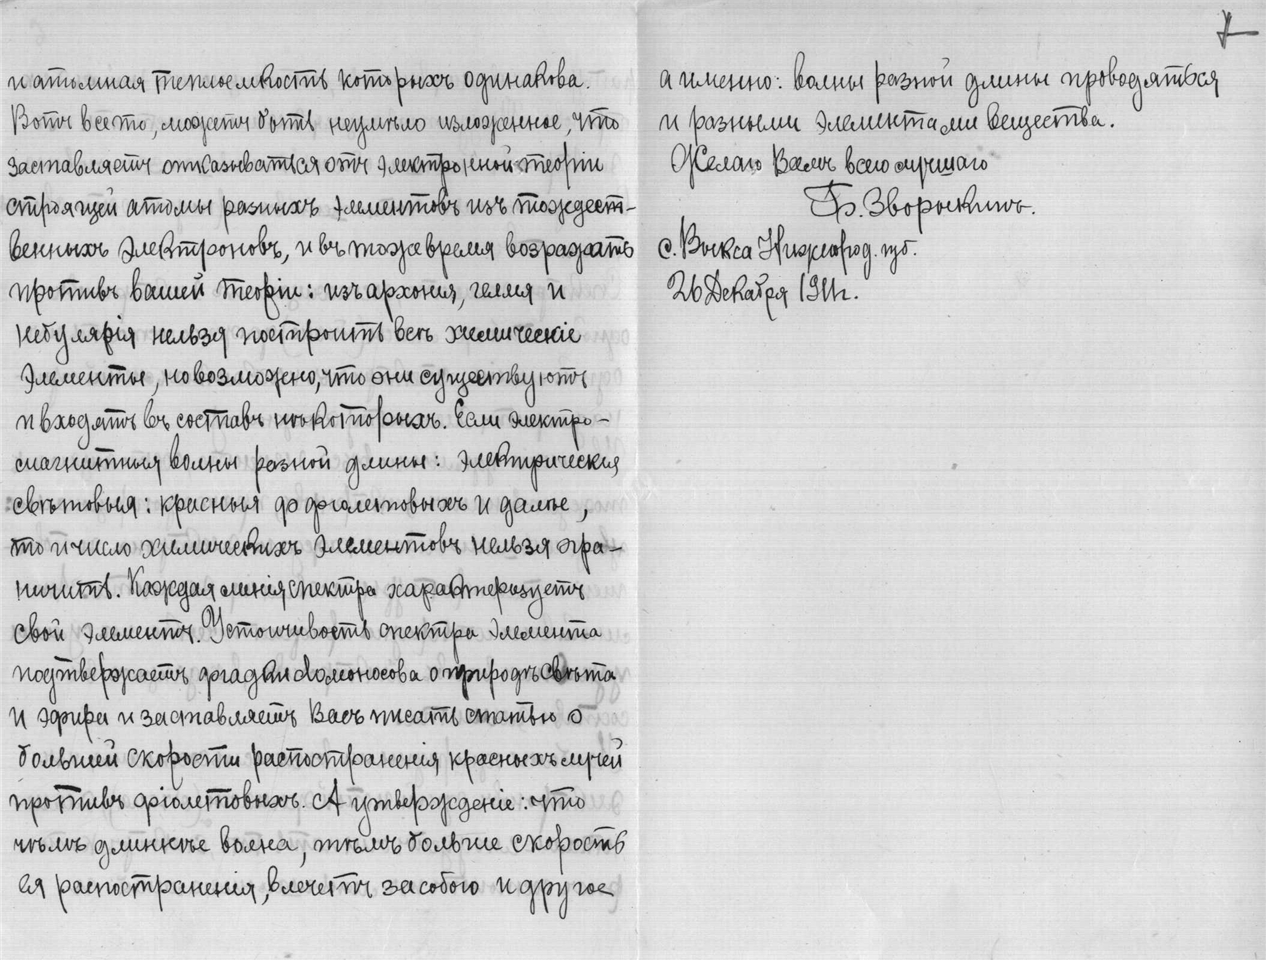 и атомная теплоемкость которыхъ одинакова.
Вотъ все то, можетъ быть неумѣло изложенное, что
заставляетъ отказываться отъ электронной теорiи
строящей атомы разныхъ элементовъ изъ тождест-
венныхъ электроновъ, и въ тоже время возражать
противъ вашей теорiи: изъ архонiя, гелiя и
небулярiя нельзя построить всѣ химическiе
элементы, но возможно, что они существуютъ
и входятъ въ составъ нѣкоторыхъ. Если электро-
магнитныя волны разной длины: электрическiя
свѣтовыя: красныя до фiолетовыхъ и далѣе,
то и число химическихъ элементовъ нельзя огра-
ничить. Каждая линiя спектра характеризуетъ
свой элементъ. Устоичивость спектра элемента
подтвержаетъ догадки Ломоносова о природѣ свѣта
и эфира и заставляетъ Васъ писать статью о
большей скорости распостраненiя красныхъ лучей
противъ фiолетовыхъ. А утвержденiе: что
чѣмъ длиннѣе волна, тѣмъ больше скорость
ея распостраненiя, влечетъ за собою и другое
а именно: волны разной длины проводяться
и разными элементами вещества.
Желаю Вамъ всего лучшаго
Б. Зворыкинъ.
с. Выкса Нижегород. губ.
26 Декабря 1911г.